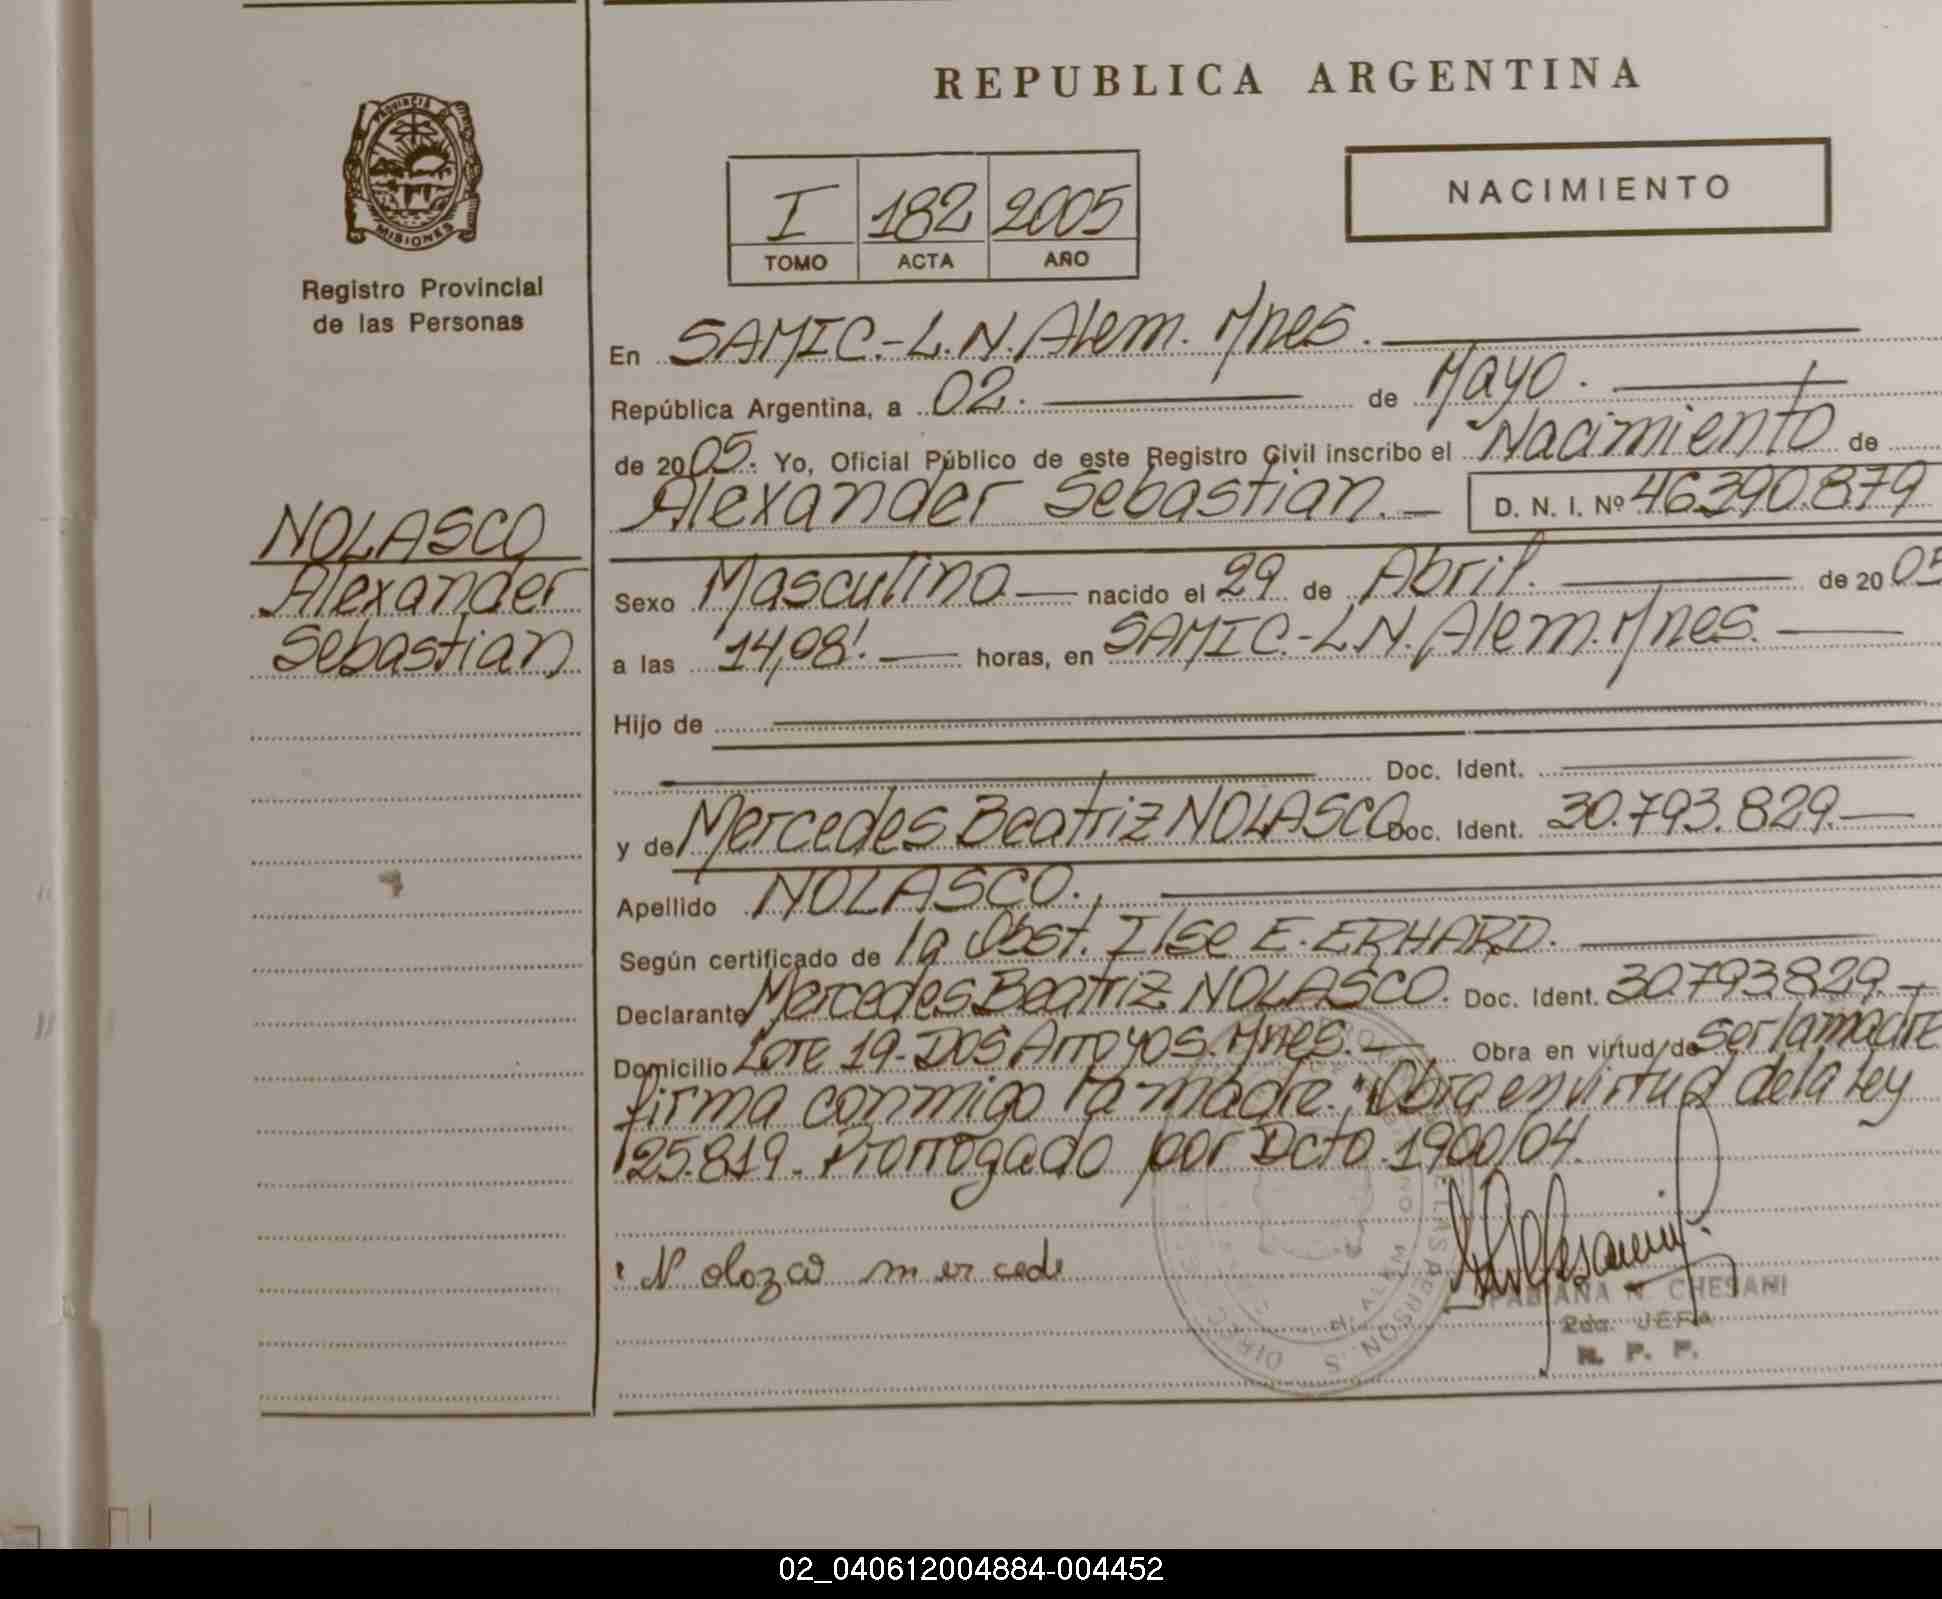 REPUBLICA ARGENTINA
PROVINCIA
MISIONES
Registro Provincial
de las Personas
I 182 2005
TOMO ACTA AÑO
NACIMIENTO
En SAMIC.-L.N.Alem. Mnes.
República Argentina, a 02. de Mayo.
de 2005. Yo, Oficial Público de este Registro Civil inscribo el Nacimiento de
Alexander Sebastian. D. N. I. Nº 46.390.879
NOLASCO
Alexander
Sebastian
Sexo Masculino nacido el 29 de Abril. de 2005
a las 14,08'. horas, en SAMIC.-L.N.Alem.Mnes.
Hijo de
Doc. Ident.
y de Mercedes Beatriz NOLASCO Doc. Ident. 30.793.829.
Apellido NOLASCO.
Según certificado de la Obst. Ilse E. ERHARD.
Declarante Mercedes Beatriz NOLASCO. Doc. Ident. 30.793.829.
Domicilio Lote 19-DOS Arroyos.Mnes. Obra en virtud de ser la madre
firma conmigo la madre. "Obra en virtud de la Ley
25.819. Prorrogado por Dcto. 1900/04.
Nolozco mercede
FABIANA N. CHESANI
2da. JEFA
R. P. P.
02_040612004884-004452